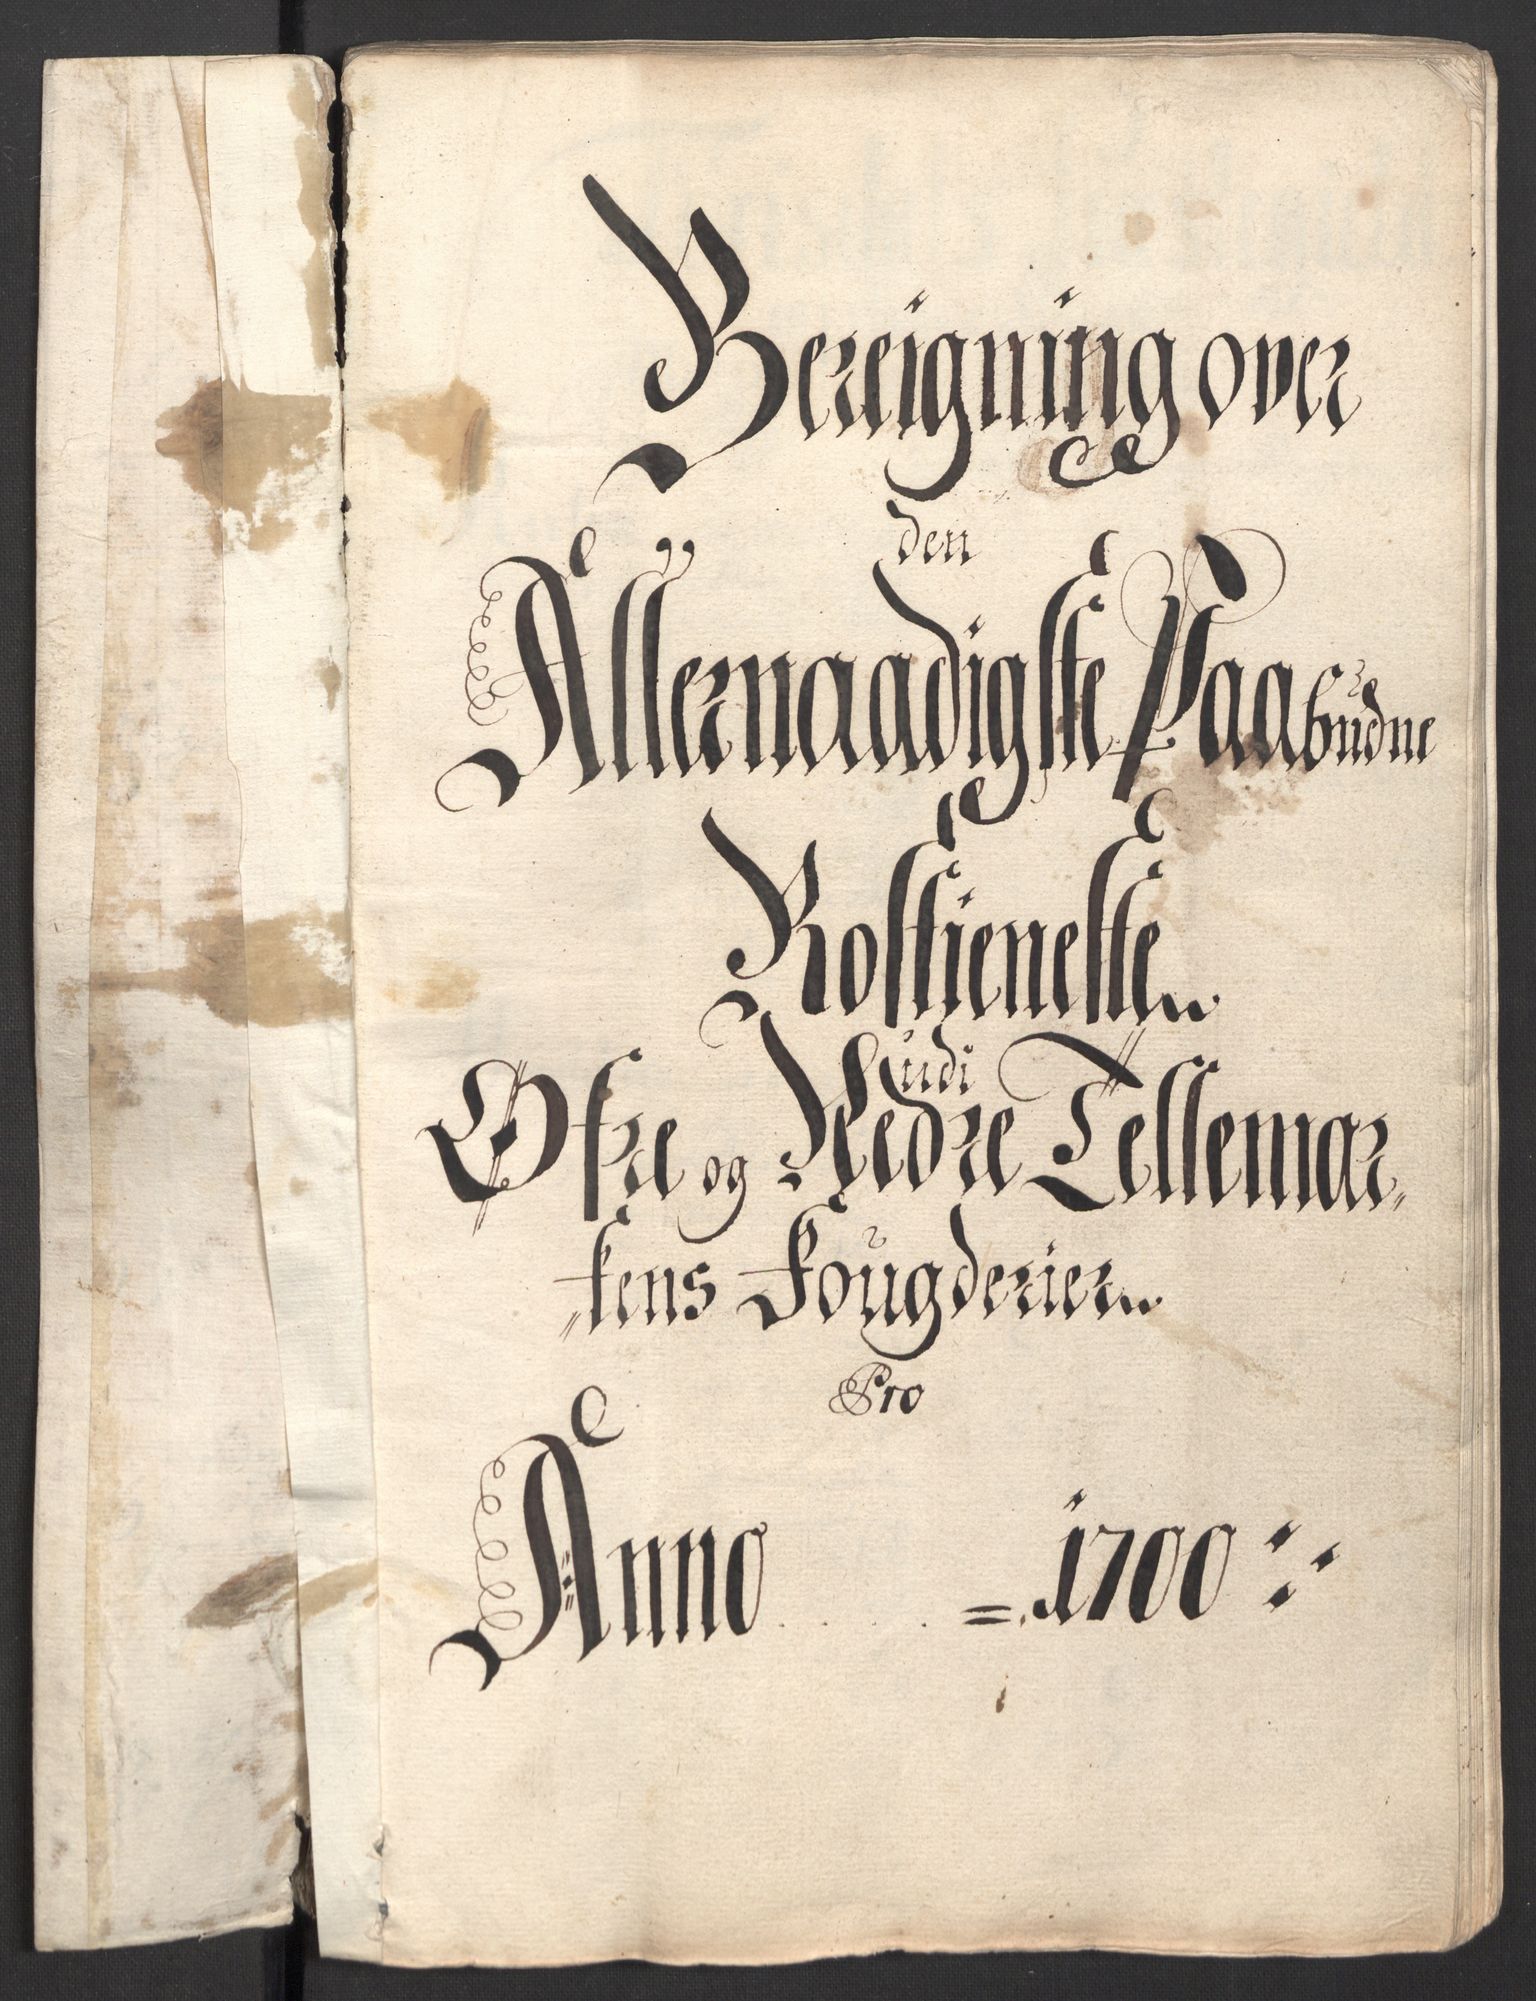 Bereigning over
den
Allernaadigste Paabudne
Rostieneste
udi
Øfre og Nedre Tellemar-
kens Fougderier
Pro
Anno = 1700